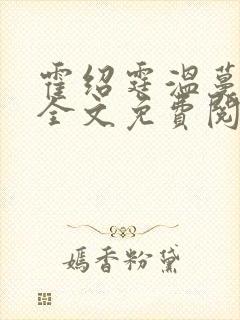 霍绍霆温蔓
全文免费阅
嫣香粉黛